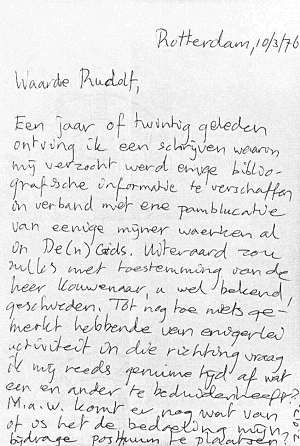 Rotterdam, 10/3/76
Waarde Rudolf,
Een jaar of twintig geleden
ontving ik een schrijven waarin
mij verzocht werd enige biblio-
grafische informatie te verschaffen
in verband met ene pamblucatie
van eenige mijner waerken al
on De(n) Gids. Uiteraard zou
zulks met toestemming van de
heer Kouwenaar, u wel bekend,
geschieden. Tot nog toe niets ge-
merkt hebbende van enigerlei
activiteit in die richting vraag
ik mij reeds geruime tijd af wat
een en ander te beduiden heeft?
M.a.w. komt er nog wat van
of is het de bedoeling mijn
bijdrage posthuum te plaatsen?